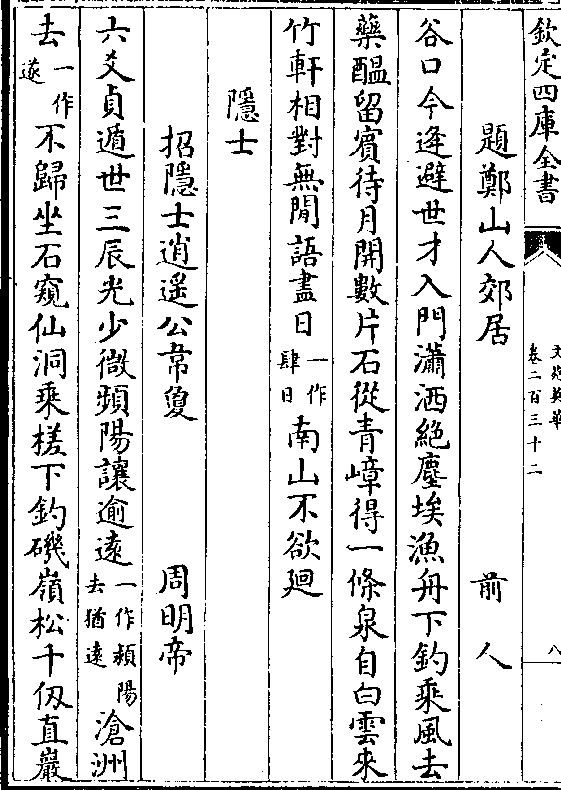 欽定四庫全書
文苑英華
卷二百三十二
八
題鄭山人郊居
前人
谷口今逢避世才入門瀟洒絶塵埃漁舟下釣乘風去
藥醖留賓待月開數片石從青嶂得一條泉自白雲來
竹軒相對無閒語盡日一作肆日南山不欲廻
隱士
招隱士逍遥公韋敻
周明帝
六爻貞遁世三辰光少微頻陽讓逾遠一作頻陽去猶遠滄洲
去一作遂不歸坐石窺仙洞乘槎下釣磯嶺松千仭直巖